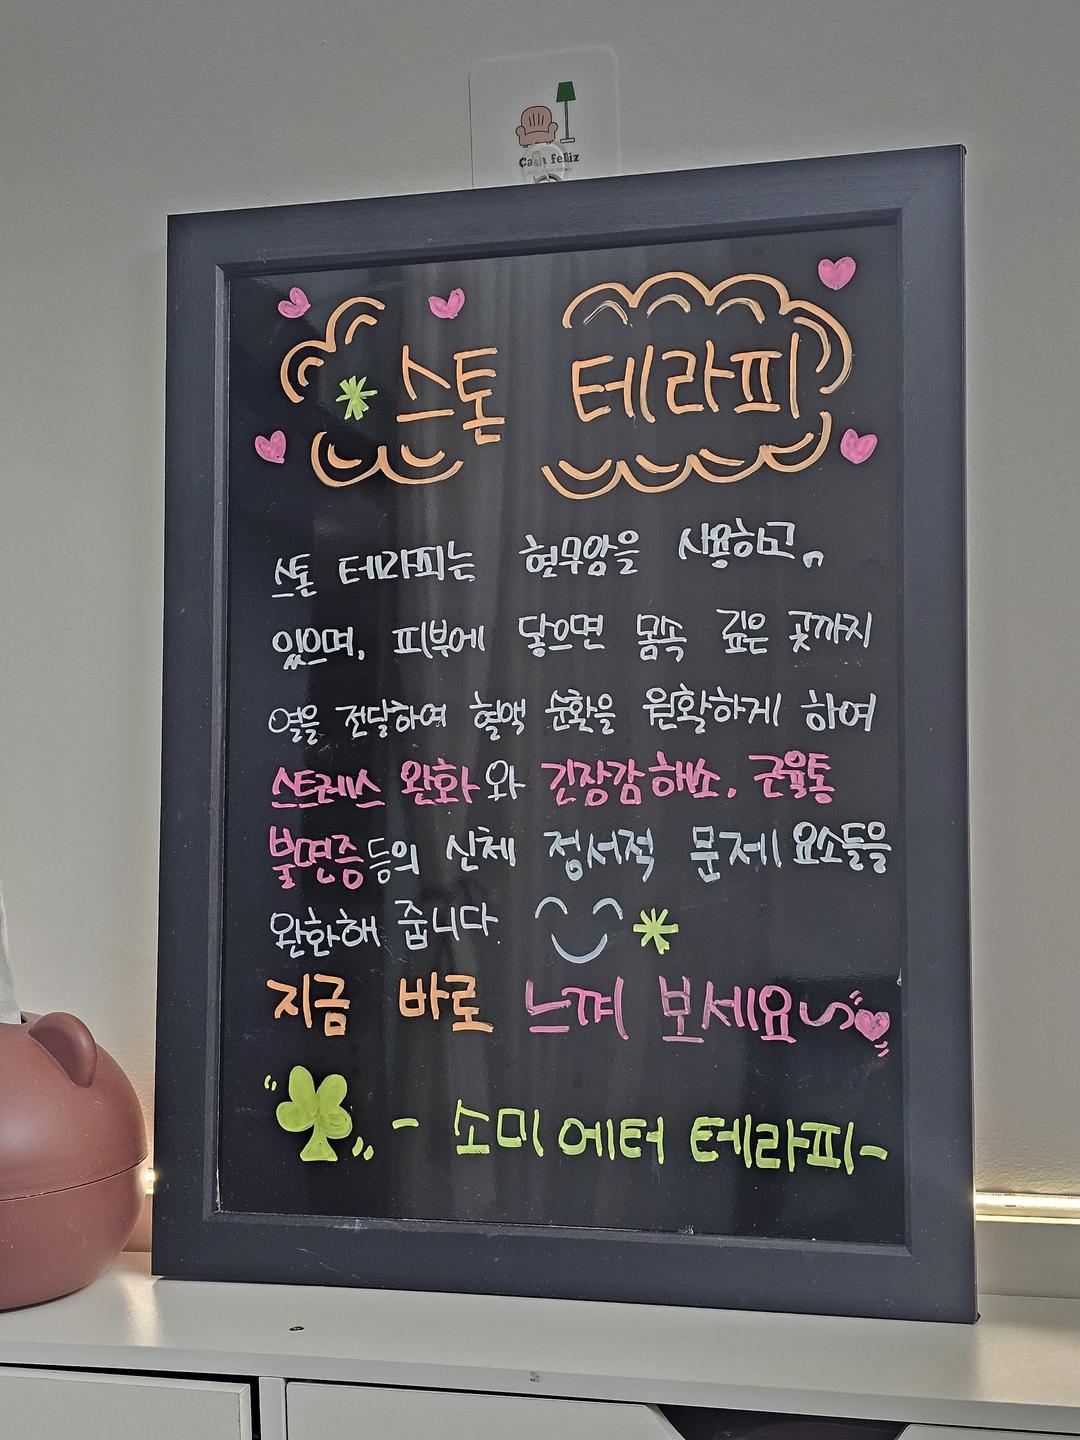 Casa feliz
스톤 테라피
스톤 테라피는 현무암을 사용하고
있으며, 피부에 닿으면 몸속 깊은 곳까지
열을 전달하여 혈액 순환을 원활하게 하여
스트레스 완화와 긴장감해소, 근육통
불면증등의 신체 정서적 문제 요소들을
완화해 줍니다.
지금 바로 느껴 보세요~
- 소미에터 테라피-